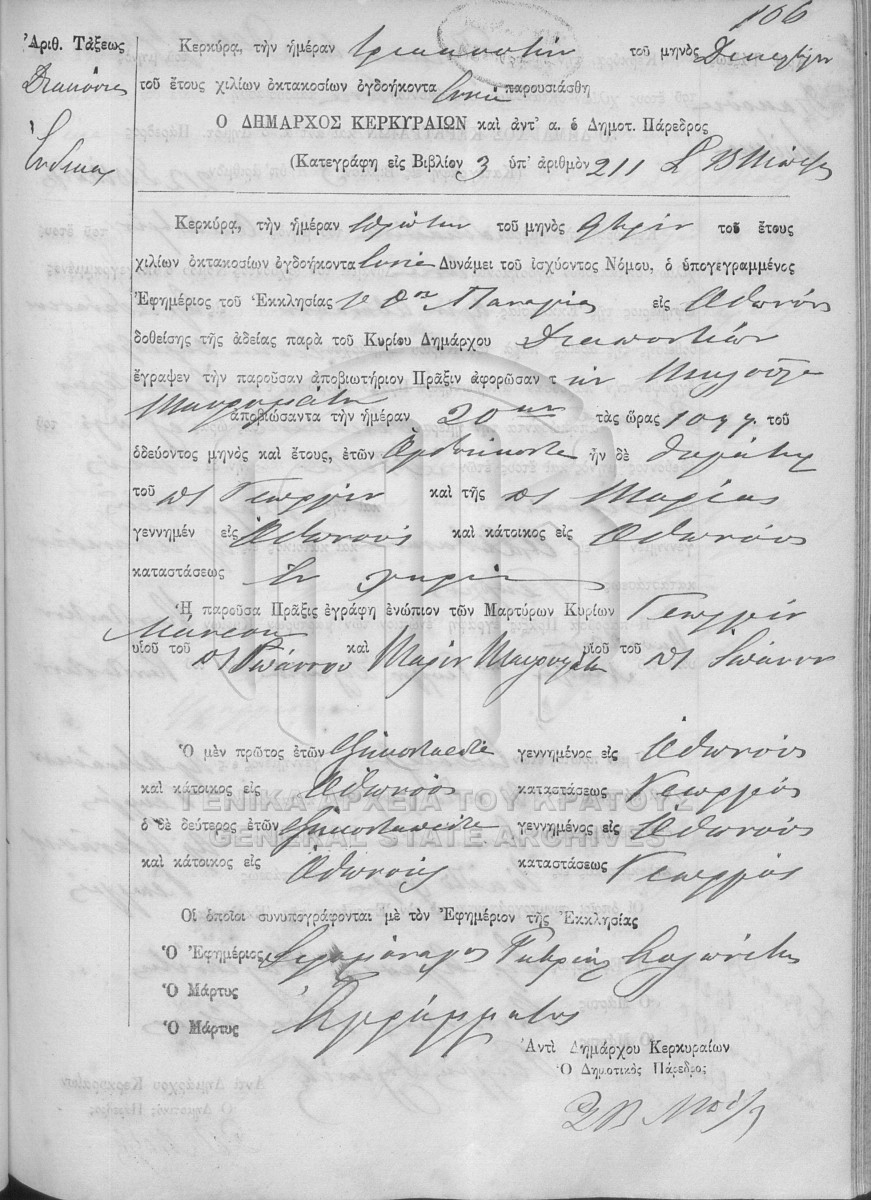 166
Ἀριθ. Τάξεως
Διακόσια
Ἕνδεκα
Κερκύρᾳ, τὴν ἡμέραν τριακοστὴν τοῦ μηνὸς Δεκεμβρίου
τοῦ ἔτους χιλίων ὀκτακοσίων ὀγδοήκοντα ἐννέα παρουσιάσθη
Ο ΔΗΜΑΡΧΟΣ ΚΕΡΚΥΡΑΙΩΝ καὶ ἀντ' α. ὁ Δημοτ. Πάρεδρος
(Κατεγράφη εἰς Βιβλίον 3 ὑπ' ἀριθμὸν 211
Κερκύρᾳ, τὴν ἡμέραν πρώτην τοῦ μηνὸς τοῦ ἔτους
χιλίων ὀκτακοσίων ὀγδοήκοντα ἐννέα Δυνάμει τοῦ ἰσχύοντος Νόμου, ὁ ὑπογεγραμμένος
Ἐφημέριος τοῦ Ἐκκλησίας Παναγίας εἰς Ὀθωνούς
δοθείσης τῆς ἀδείας παρὰ τοῦ Κυρίου Δημάρχου Διαποντίων
ἔγραψεν τὴν παροῦσαν ἀποβιωτήριον Πρᾶξιν ἀφορῶσαν τ ὴν
ἀποβιώσαντα τὴν ἡμέραν 20 ην τὰς ὥρας 10 τοῦ
ὁδεύοντος μηνὸς καὶ ἔτους, ἐτῶν ὀγδοήκοντα ἦν δὲ θυγάτηρ
τοῦ πτ Γεωργίου καὶ τῆς πτ Μαρίας
γεννημέν εἰς Ὀθωνούς καὶ κάτοικος εἰς Ὀθωνούς
καταστάσεως ἐν χηρείᾳ
Ἡ παροῦσα Πρᾶξις ἐγράφη ἐνώπιον τῶν Μαρτύρων Κυρίων Γεωργίου
υἱοῦ τοῦ πτ Ἰωάννου καὶ υἱοῦ τοῦ πτ Ἰωάννου
Ὁ μὲν πρῶτος ἐτῶν γεννημένος εἰς Ὀθωνούς
καὶ κάτοικος εἰς Ὀθωνούς καταστάσεως Γεωργός
ὁ δὲ δεύτερος ἐτῶν γεννημένος εἰς Ὀθωνούς
καὶ κάτοικος εἰς Ὀθωνούς καταστάσεως Γεωργός
ΓΕΝΙΚΑ ΑΡΧΕΙΑ ΤΟΥ ΚΡΑΤΟΥΣ
GENERAL STATE ARCHIVES
Οἱ ὁποῖοι συνυπογράφονται μὲ τὸν Ἐφημέριον τῆς Ἐκκλησίας
Ὁ Ἐφημέριος Ἱερομόναχος Γαβριὴλ
Ὁ Μάρτυς
Ὁ Μάρτυς Ἀγράμματος
Ἀντὶ Δημάρχου Κερκυραίων
Ὁ Δημοτικὸς Πάρεδρος